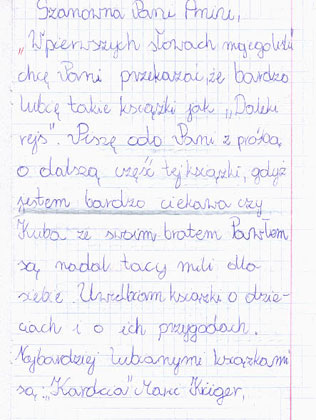 Szanowna Pani Anno,
„W pierwszych słowach mojego listu
chcę Pani przekazać, że bardzo
lubię takie książki jak „Daleki
rejs". Piszę do Pani z prośbą
o dalszą część tej książki, gdyż
jestem bardzo ciekawa czy
Kuba ze swoim bratem Pawłem
są nadal tacy mili dla
siebie. Uwielbiam książki o dzie-
ciach i o ich przygodach.
Najbardziej lubianymi książkami
są: „Karolcia" Marii Krüger,